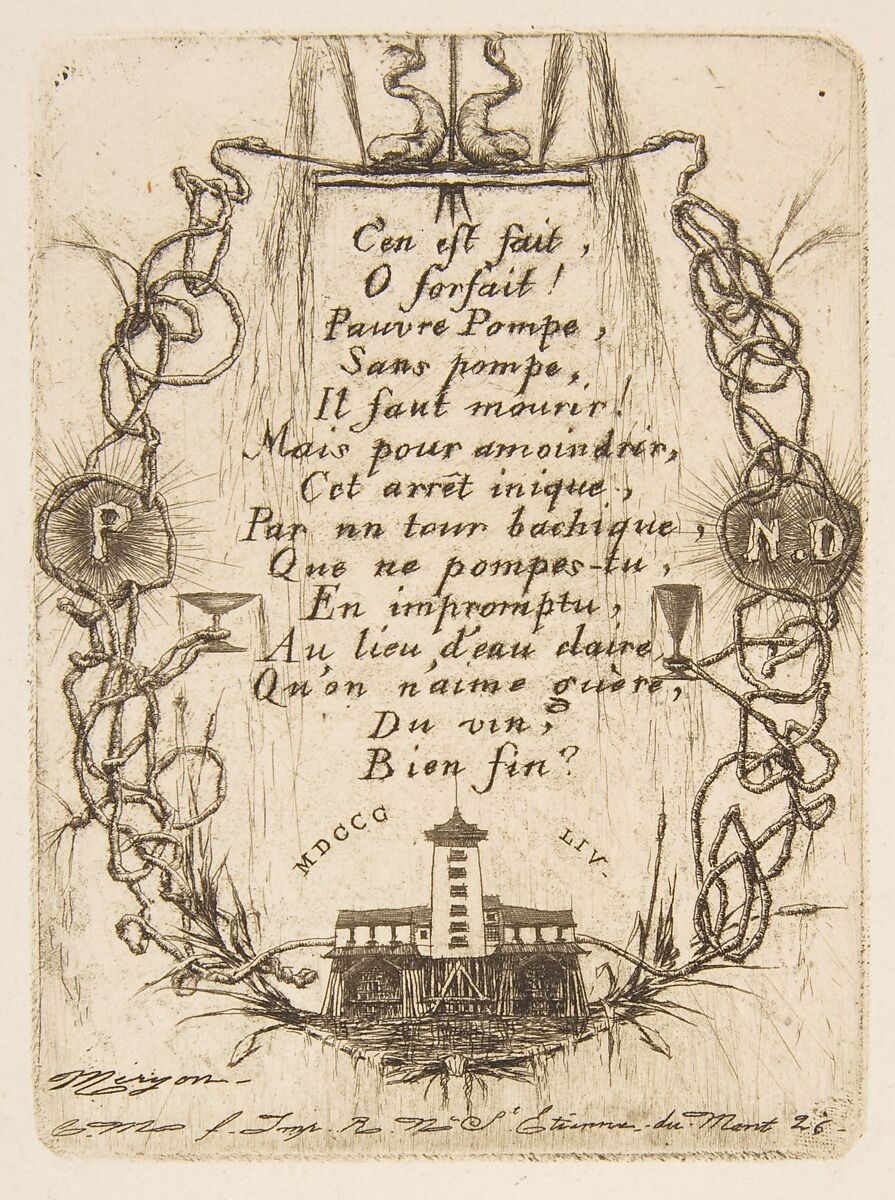 Cen est fait,
O forfait!
Pauvre Pompe,
Sans pompe,
Il faut mourir!
Mais pour amoindrir,
Cet arrêt inique,
Par nn tour bachique,
Que ne pompes-tu,
En impromptu,
Au lieu d'eau claire,
Qu'on n'aime guère,
Du vin,
Bien fin?
P
N.D
MDCCC LIV.
Méryon
C.M f. Imp. R. Nve St Etienne-du-Mont 26.